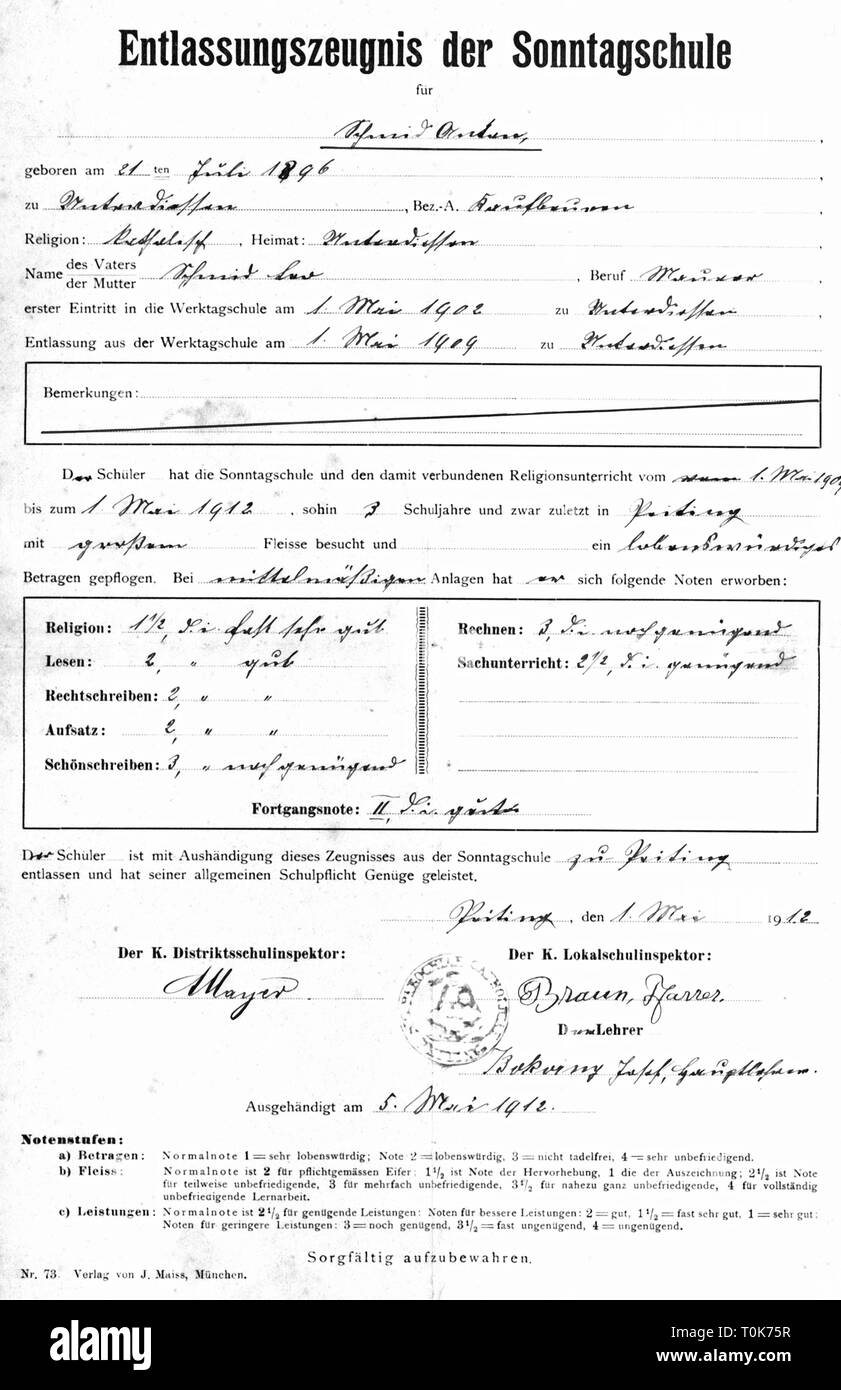 Entlassungszeugnis der Sonntagschule
für
Schmid Anton,
geboren am 21ten Juli 1896
zu Unterdiessen, Bez.-A. Kaufbeuren
Religion: katholisch, Heimat: Unterdiessen
Name des Vaters der Mutter Schmid Leo, Beruf Maurer
erster Eintritt in die Werktagschule am 1. Mai 1902 zu Unterdiessen
Entlassung aus der Werktagschule am 1. Mai 1909 zu Unterdiessen
Bemerkungen:
Der Schüler hat die Sonntagschule und den damit verbundenen Religionsunterricht vom vom 1. Mai 1909
bis zum 1. Mai 1912, sohin 3 Schuljahre und zwar zuletzt in Peiting
mit großem Fleisse besucht und ein lobenswürdiges
Betragen gepflogen. Bei mittelmäßigen Anlagen hat er sich folgende Noten erworben:
Religion: 1 1/2, d. i. fast sehr gut
Lesen: 2, " gut
Rechtschreiben: 2, " "
Aufsatz: 2, " "
Schönschreiben: 3, " noch genügend
Rechnen: 3, d. i. noch genügend
Sachunterricht: 2 1/2, d. i. genügend
Fortgangsnote: II, d. i. gut
Der Schüler ist mit Aushändigung dieses Zeugnisses aus der Sonntagschule zu Peiting
entlassen und hat seiner allgemeinen Schulpflicht Genüge geleistet.
Peiting, den 1. Mai 1912
Der K. Distriktsschulinspektor:
Mayer.
Der K. Lokalschulinspektor:
Braun, Pfarrer.
Der Lehrer
Josef, Hauptlehrer.
Ausgehändigt am 5. Mai 1912.
Notenstufen:
a) Betragen: Normalnote 1 = sehr lobenswürdig; Note 2 = lobenswürdig, 3 = nicht tadelfrei, 4 = sehr unbefriedigend.
b) Fleiss: Normalnote ist 2 für pflichtgemässen Eifer; 1 1/2 ist Note der Hervorhebung, 1 die der Auszeichnung; 2 1/2 ist Note
für teilweise unbefriedigende, 3 für mehrfach unbefriedigende, 3 1/2 für nahezu ganz unbefriedigende, 4 für vollständig
unbefriedigende Lernarbeit.
c) Leistungen: Normalnote ist 2 1/2 für genügende Leistungen: Noten für bessere Leistungen: 2 = gut, 1 1/2 = fast sehr gut, 1 = sehr gut;
Noten für geringere Leistungen: 3 = noch genügend, 3 1/2 = fast ungenügend, 4 = ungenügend.
Sorgfältig aufzubewahren.
Nr. 73. Verlag von J. Maiss, München.
alamy
Image ID: T0K75R
www.alamy.com